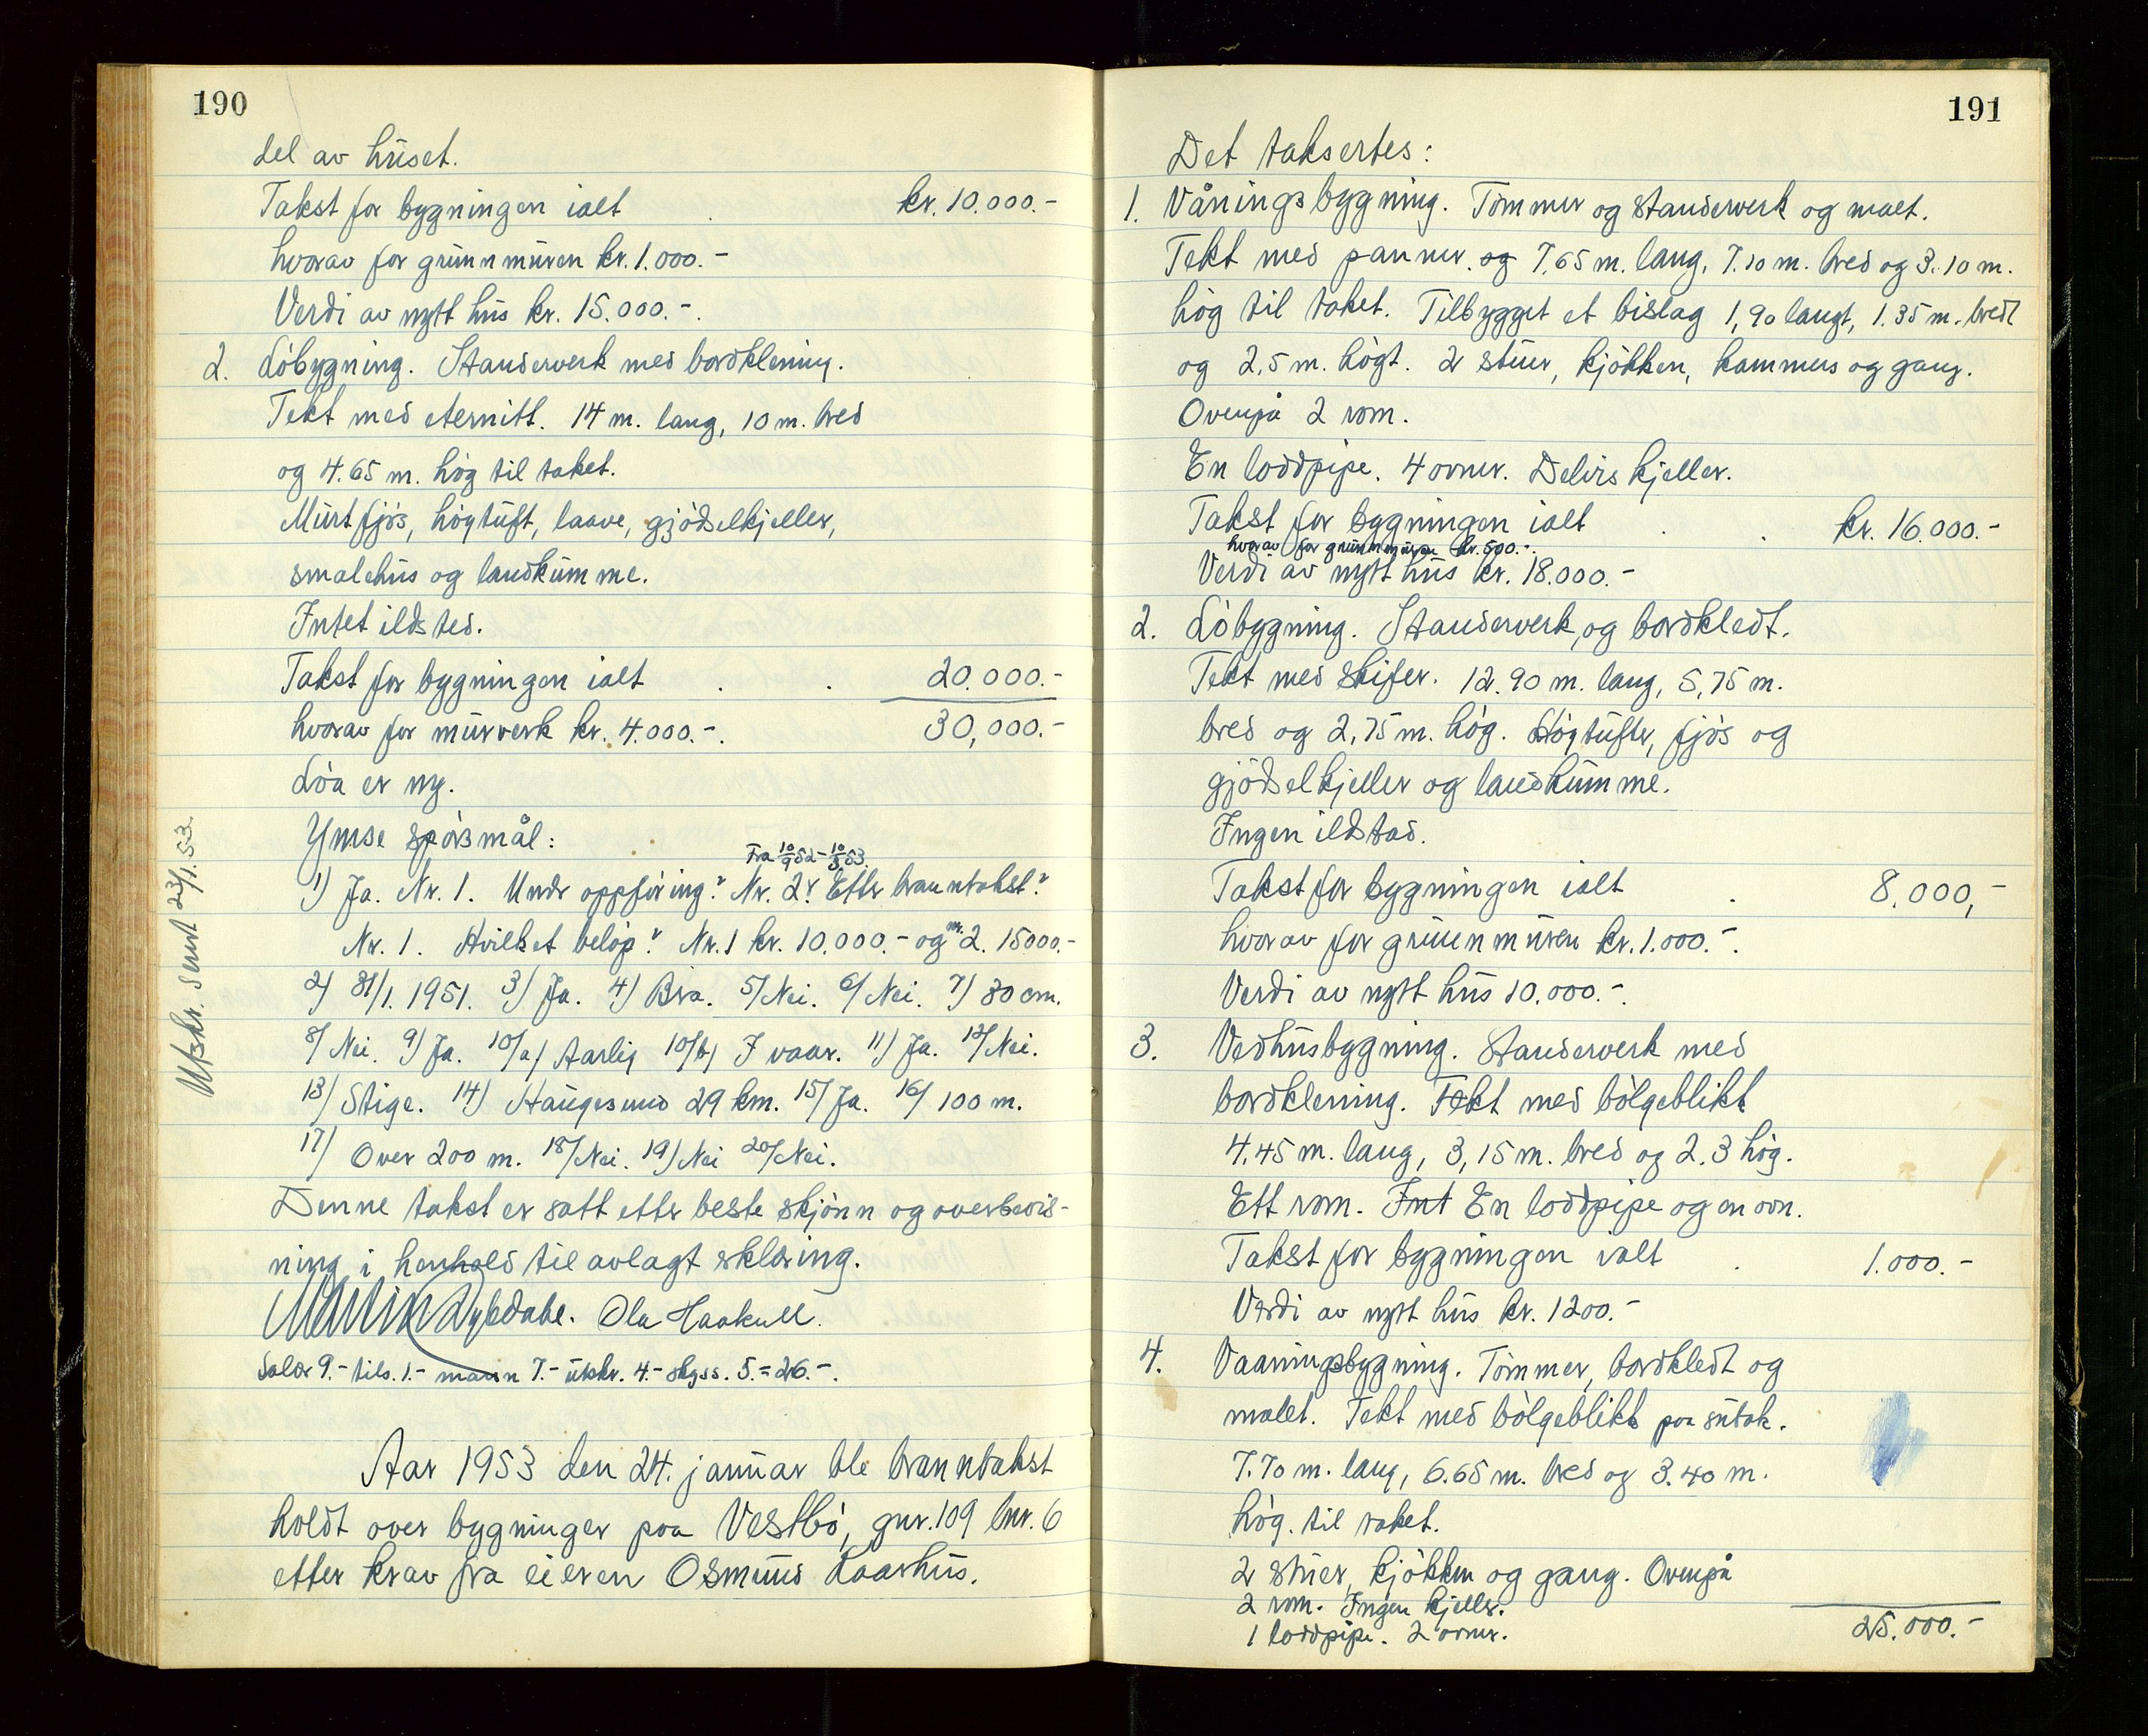 190
del av huset.
Takst for bygningen ialt . kr. 10.000.-
hvorav for grunnmuren kr. 1.000.-
Verdi av nytt hus kr. 15.000.-.
2. Löbygning. Standerverk med bordklening.
Tekt med eternitt. 14 m. lang, 10 m. bred
og 4.65 m. hög til taket.
Murt fjös, höytuft, laave, gjödselkjeller,
smalehus og landkumme.
Intet ildsted.
Takst for bygningen ialt . . 20.000.-
hvorav for murverk kr. 4.000.-. 30,000.-
Löa er ny.
Ymse spörsmål:
Fra 10/9 52 - 10/3 53.
1) Ja. Nr. 1. Under oppföring? Nr. 2? Etter branntakst?
Nr. 1. Hvilket belöp? Nr. 1 kr. 10.000.- og nr. 2. 15000.-
2) 31/1. 1951. 3) Ja. 4) Bra. 5/ Nei. 6/ Nei. 7) 30 cm.
8/ Nei. 9) Ja. 10/a) Aarlig 10/b) I vaar. 11) Ja. 12/ Nei.
13) Stige. 14) Haugesund 29 km. 15/ Ja. 16/ 100 m.
17) Over 200 m. 18/ Nei. 19/ Nei 20/ Nei.
Denne takst er satt etter beste skjönn og overbevis-
ning i henhold til avlagt erklæring.
Martin Dybdahl. Ola Haakull.
Salær 9.- tils. 1.- mann 7.- utskr. 4.- skyss. 5. = 26.-.
Utskr. sendt 23/1. 53.
Aar 1953 den 24. januar ble branntakst
holdt over bygninger paa Vestbö, gnr. 109 bnr. 6
etter krav fra eieren Osmund Laarhus.
191
Det taksertes:
1. Våningsbygning. Tömmer og standerverk og malt.
Tekt med panner og 7.65 m. lang, 7.10 m. bred og 3.10 m.
hög til taket. Tilbygget et bislag 1,90 langt, 1.35 m. bredt
og 2,5 m. högt. 2 stuer, kjökken, kammers og gang.
Ovenpå 2 rom.
En loddpipe. 4 ovner. Delvis kjeller.
Takst for bygningen ialt . . kr. 16.000.-
hvorav for grunnmuren kr. 500.-.
Verdi av nytt hus kr. 18.000.-
2. Löbygning. Standerverk, og bordkledt.
Tekt med skifer. 12.90 m. lang, 5,75 m.
bred og 2,75 m. hög. Höytufter, fjös og
gjödselkjeller og landkumme.
Ingen ildsted.
Takst for bygningen ialt . 8.000,-
hvorav for grunnmuren kr. 1.000.-.
Verdi av nytt hus 10.000.-.
3. Vedhusbygning. Standerverk med
bordklening. Tekt med bölgeblikk
4,45 m. lang, 3,15 m. bred og 2.3 hög.
Ett rom. Int En loddpipe og en ovn.
Takst for bygningen ialt . 1.000.-
Verdi av nytt hus kr. 1200.-
4. Vaaningsbygning. Tömmer, bordkledt og
malet. Tekt med bölgeblikk paa sutak.
7.70 m. lang, 6.65 m. bred og 3.40 m.
hög. til taket.
2 stuer, kjökken og gang. Ovenpå
2 rom. Ingen kjeller.
1 loddpipe. 2 ovner. 25.000.-